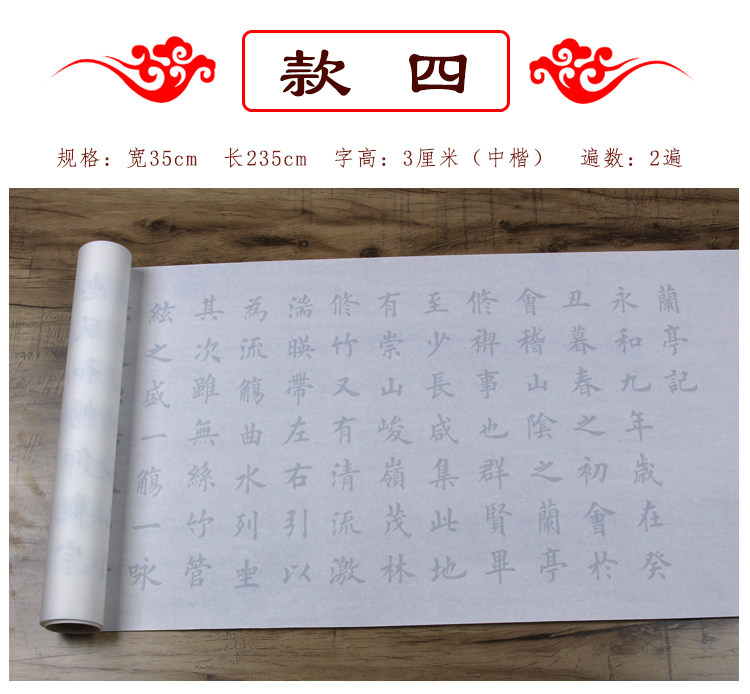 款 四
规格：宽35cm 长235cm 字高：3厘米（中楷） 遍数：2遍
蘭亭記
永和九年歲在癸
丑暮春之初會於
會稽山陰之蘭亭
修禊事也群賢畢
至少長咸集此地
有崇山峻嶺茂林
修竹又有清流激
湍暎帶左右引以
為流觴曲水列坐
其次雖無絲竹管
絃之盛一觴一咏